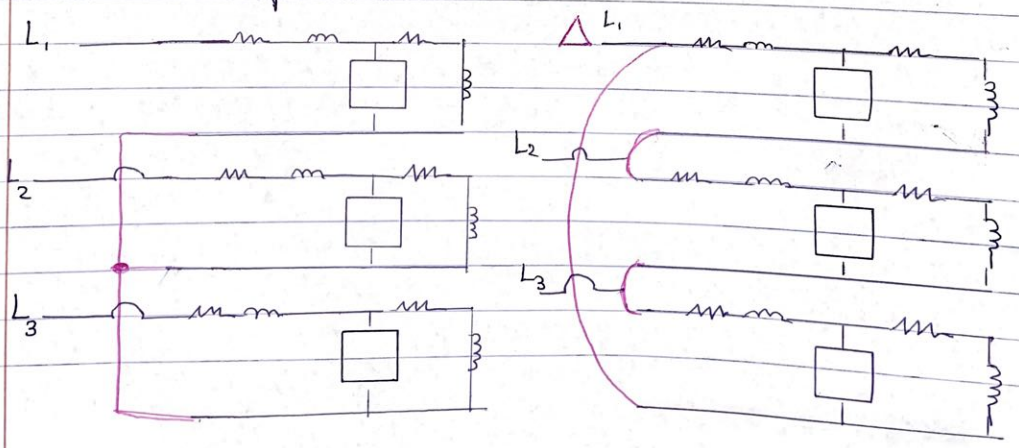 L1
L2
L3
L1
L2
L3